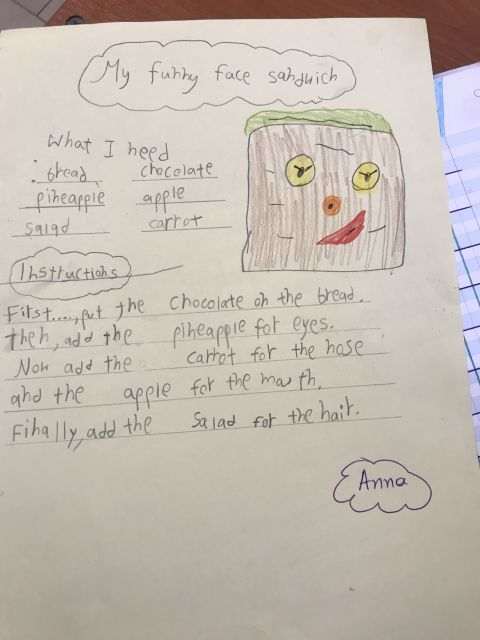 My funny face sandwich
What I need
: bread chocolate
pineapple apple
salad carrot
Instructions
First...., put the chocolate on the bread.
then, add the pineapple for eyes.
Now add the carrot for the nose
and the apple for the mouth.
Finally, add the salad for the hair.
Anna